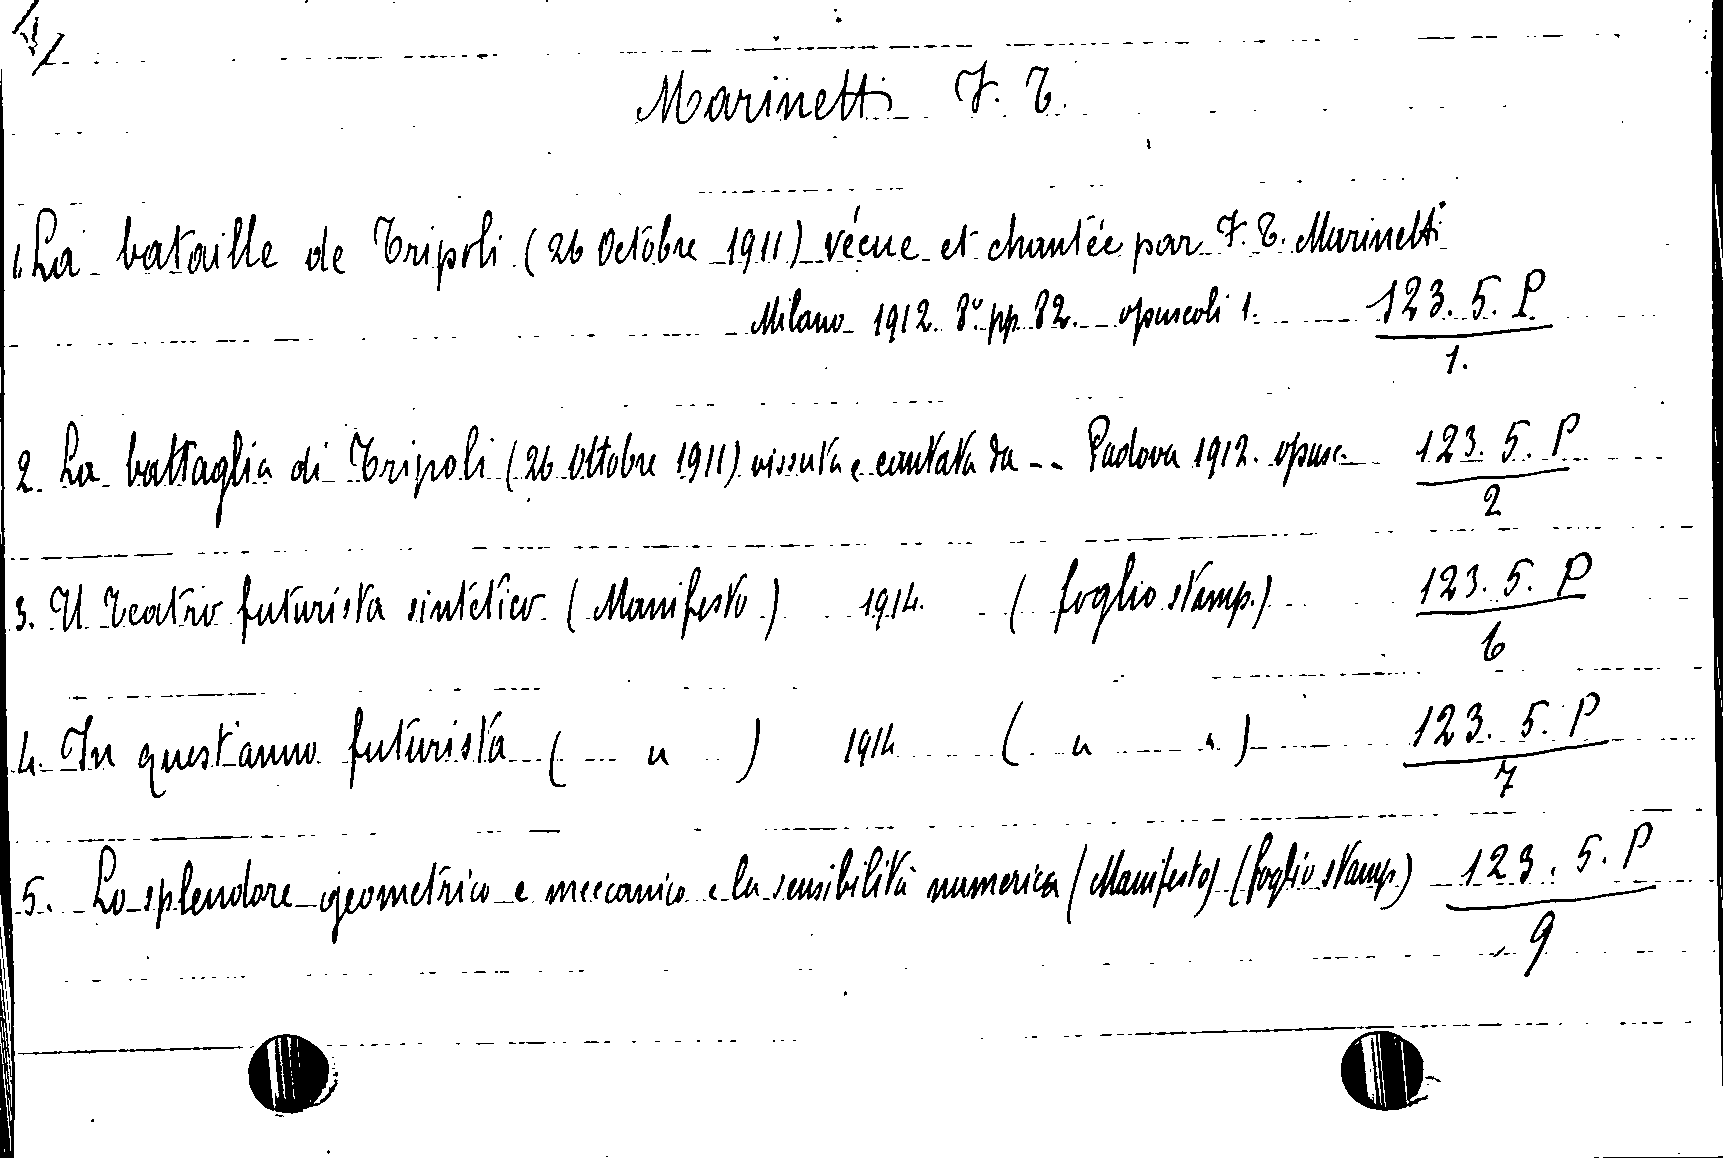 Marinetti F. T.
1. La bataille de Tripoli (26 Octobre 1911) vécue et chantée par F. T. Marinetti
Milano 1912. 8º. pp. 82. opuscoli 1. 123. 5. P
1.
2. La battaglia di Tripoli (26 Ottobre 1911) vissuta e cantata da -- Padova 1912. opusc. 123. 5. P
2
3. Il Teatro futurista sintetico (Manifesto) 1914. (foglio stamp.) 123. 5. P
6
4. In quest'anno futurista ( " ) 1914 ( " " ) 123. 5. P
7
5. Lo splendore geometrico e meccanico e la sensibilità numerica (Manifesto) (foglio stamp) 123. 5. P
9